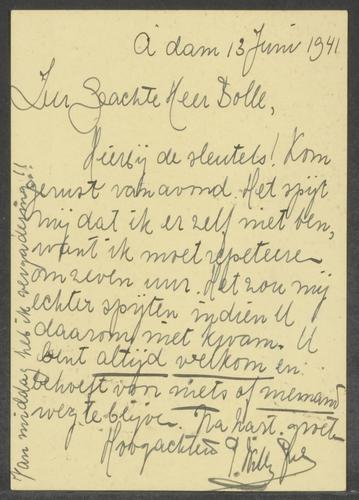 A dam 13 Juni 1941
Zeer Geachte Heer Bolle,
Hierbij de sleutels! Kom
gerust vanavond. Het spijt
mij dat ik er zelf niet ben,
want ik moet repeteere
om zeven uur. Het zou mij
echter spijten indien U
daarom niet kwam. U
bent altijd welkom en
behoeft voor niets of niemand
weg te blijve. Na hart. groete
Hoogachtend
Willy
Van middag heb ik vergadering!!